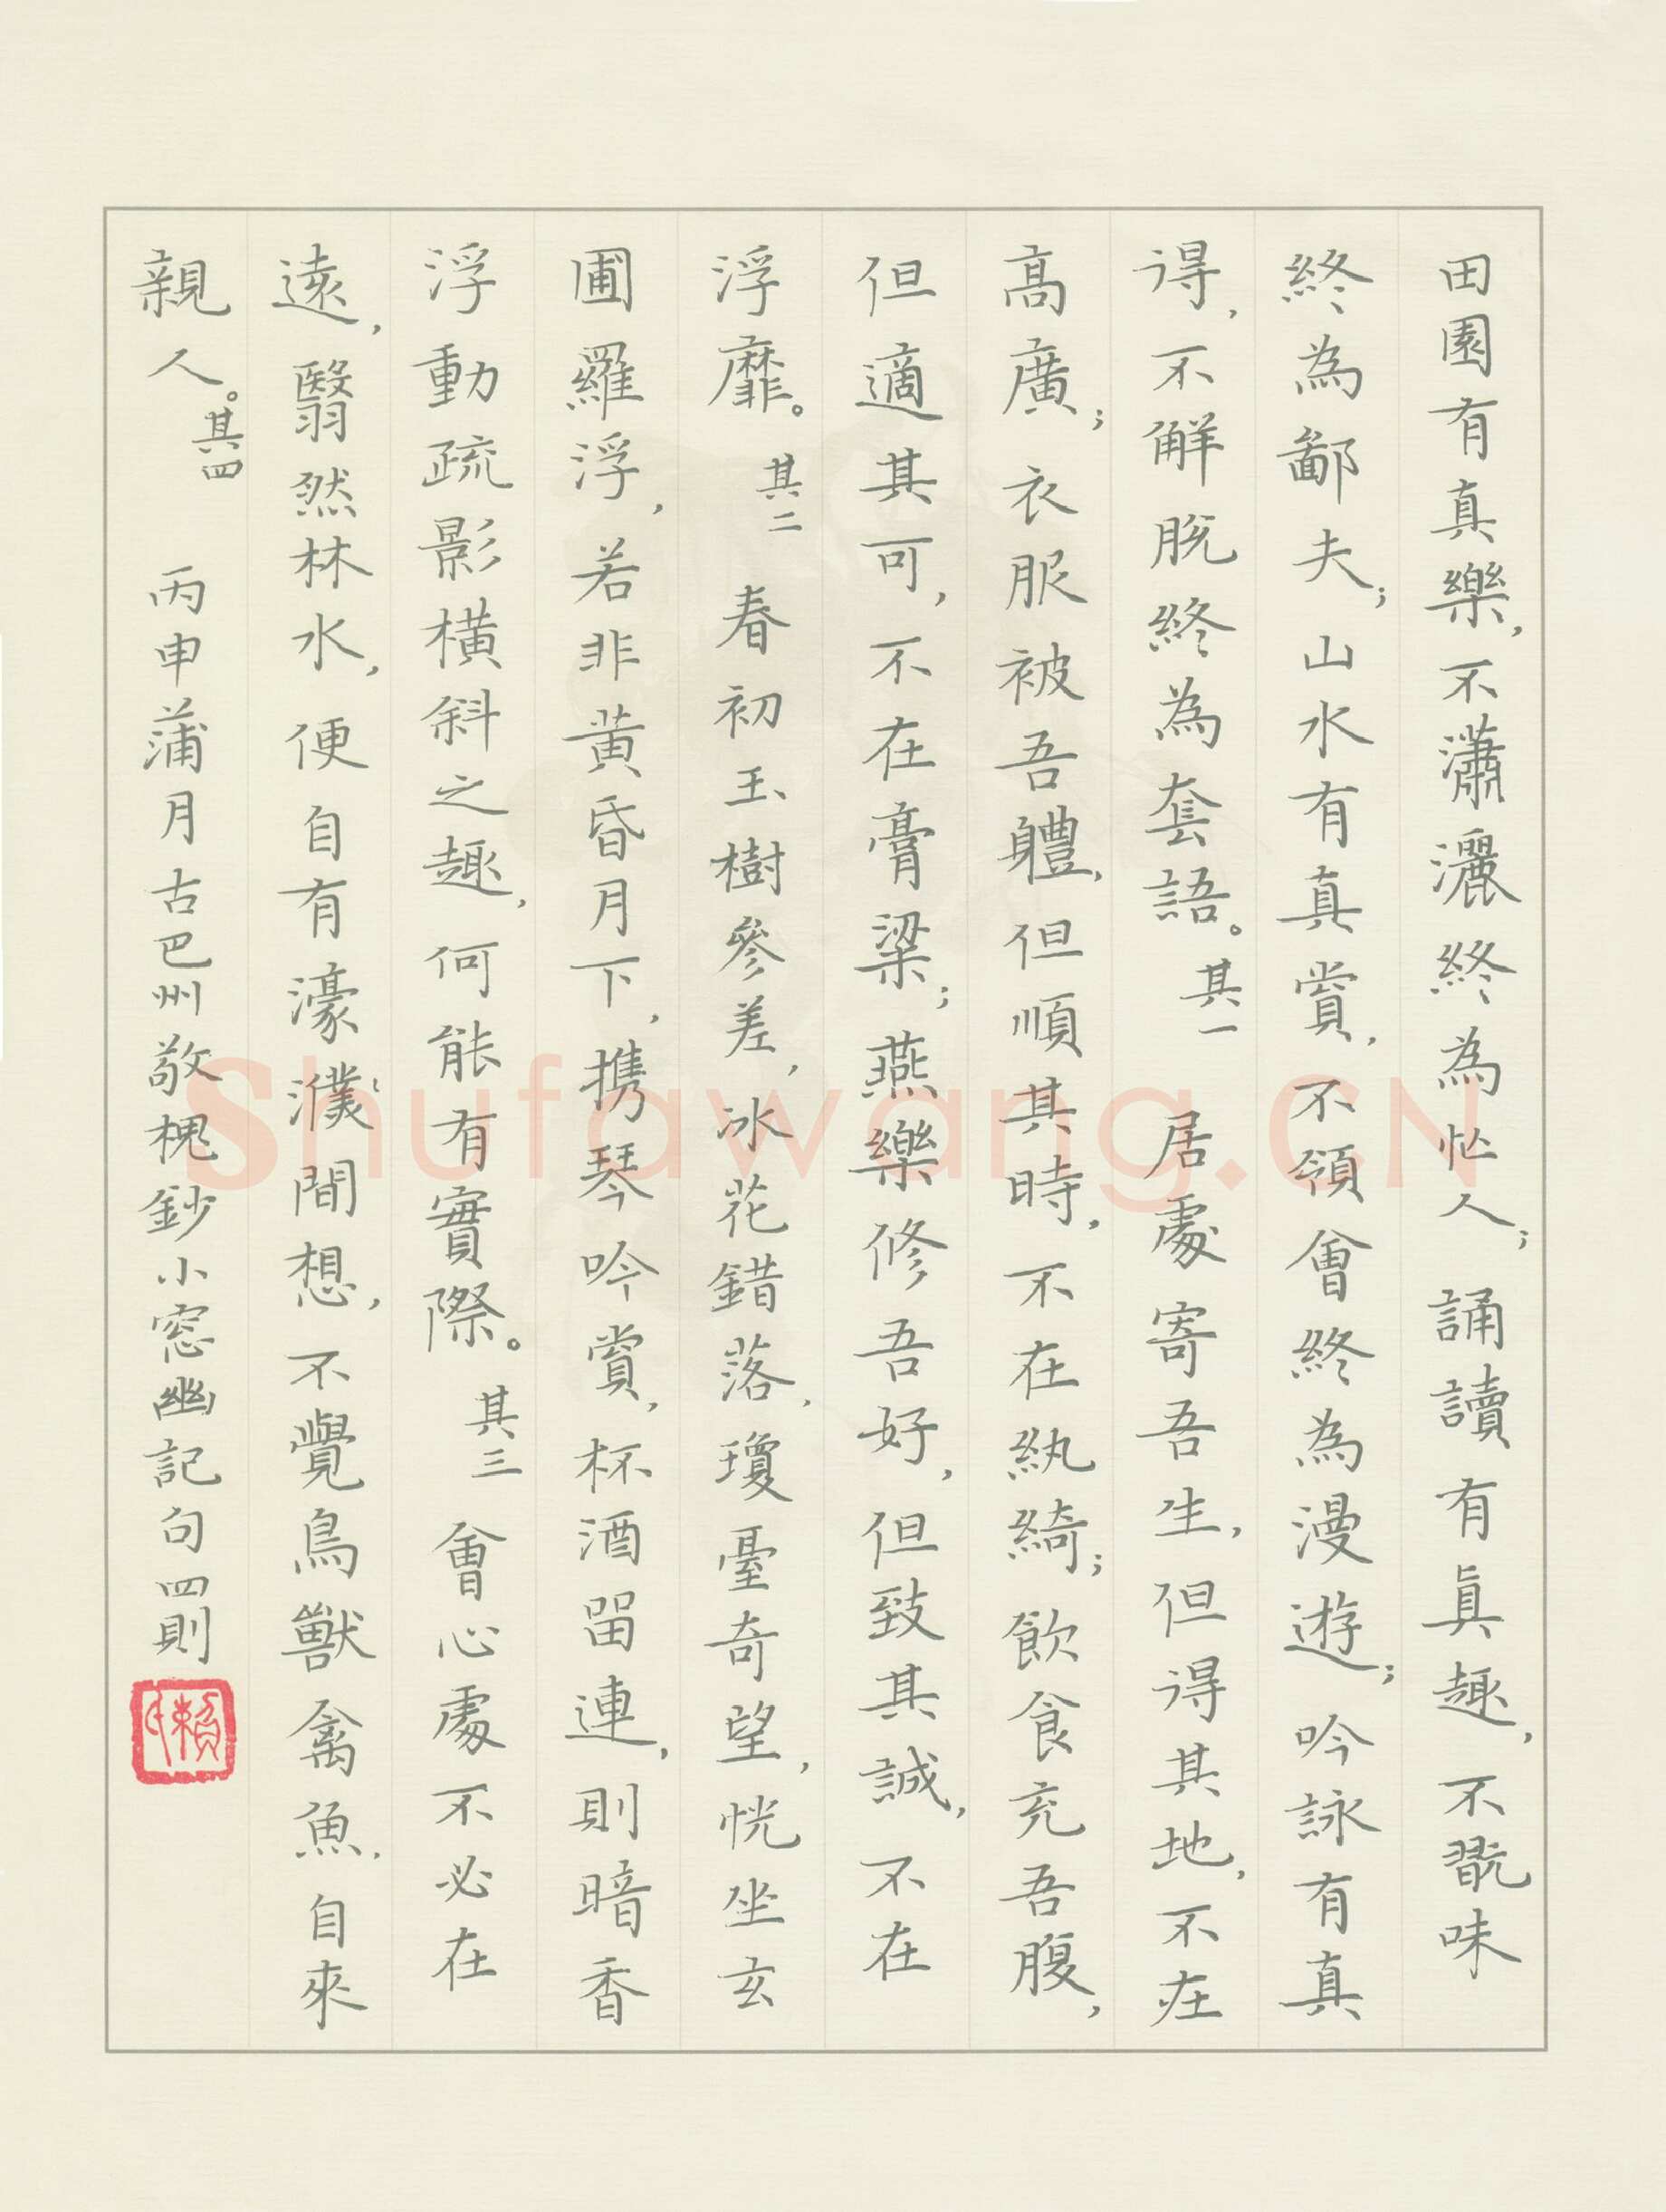 田園有真樂,不瀟灑終為忙人;誦讀有眞趣,不翫味
終為鄙夫;山水有真賞,不領會終為漫遊;吟詠有真
得,不解脫終為套語。其一 居處寄吾生,但得其地,不在
高廣;衣服被吾軆,但順其時,不在紈綺;飲食充吾腹,
但適其可,不在膏粱;燕樂修吾好,但致其誠,不在
浮靡。其二 春初玉樹參差,冰花錯落,瓊臺奇望,恍坐玄
圃羅浮,若非黃昏月下,携琴吟賞,杯酒留連,則暗香
浮動疏影橫斜之趣,何能有實際。其三 會心處不必在
遠,翳然林水,便自有濠濮間想,不覺鳥獸禽魚,自來
親人。其四 丙申蒲月古巴州敬槐鈔小窓幽記句四則
Shufawang.CN